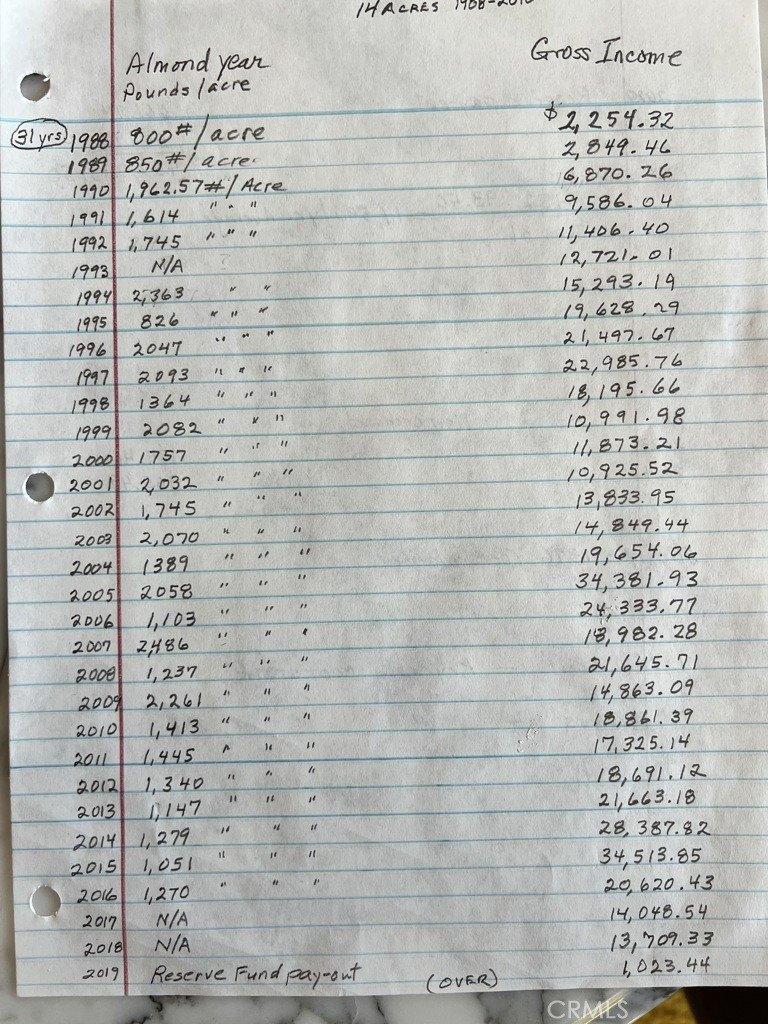 14 ACRES 1988-201
Almond year Gross Income
Pounds/acre
31 yrs 1988 800#/acre $2,254.32
1989 850#/acre. 2,849.46
1990 1,962.57#/Acre 6,870.26
1991 1,614 " " " 9,586.04
1992 1,745 " " " 11,406.40
1993 N/A 12,721.01
1994 2,363 " " 15,293.19
1995 826 " " " 19,628.29
1996 2047 " " " 21,497.67
1997 2093 " " " 22,985.76
1998 1364 " " " 18,195.66
1999 2082 " " " 10,991.98
2000 1757 " " " 11,873.21
2001 2,032 " " " 10,925.52
2002 1,745 " " " 13,833.95
2003 2,070 " " " 14,849.44
2004 1389 " " " 19,654.06
2005 2058 " " " 34,381.93
2006 1,103 " " " 24,333.77
2007 2486 " " " 18,982.28
2008 1,237 " " " 21,645.71
2009 2,261 " " " 14,863.09
2010 1,413 " " " 18,861.39
2011 1,445 " " " 17,325.14
2012 1,340 " " " 18,691.12
2013 1,147 " " " 21,663.18
2014 1,279 " " " 28,387.82
2015 1,051 " " " 34,513.85
2016 1,270 " " " 20,620.43
2017 N/A 14,048.54
2018 N/A 13,709.33
2019 Reserve Fund pay-out (OVER) 1,023.44
CRMLS